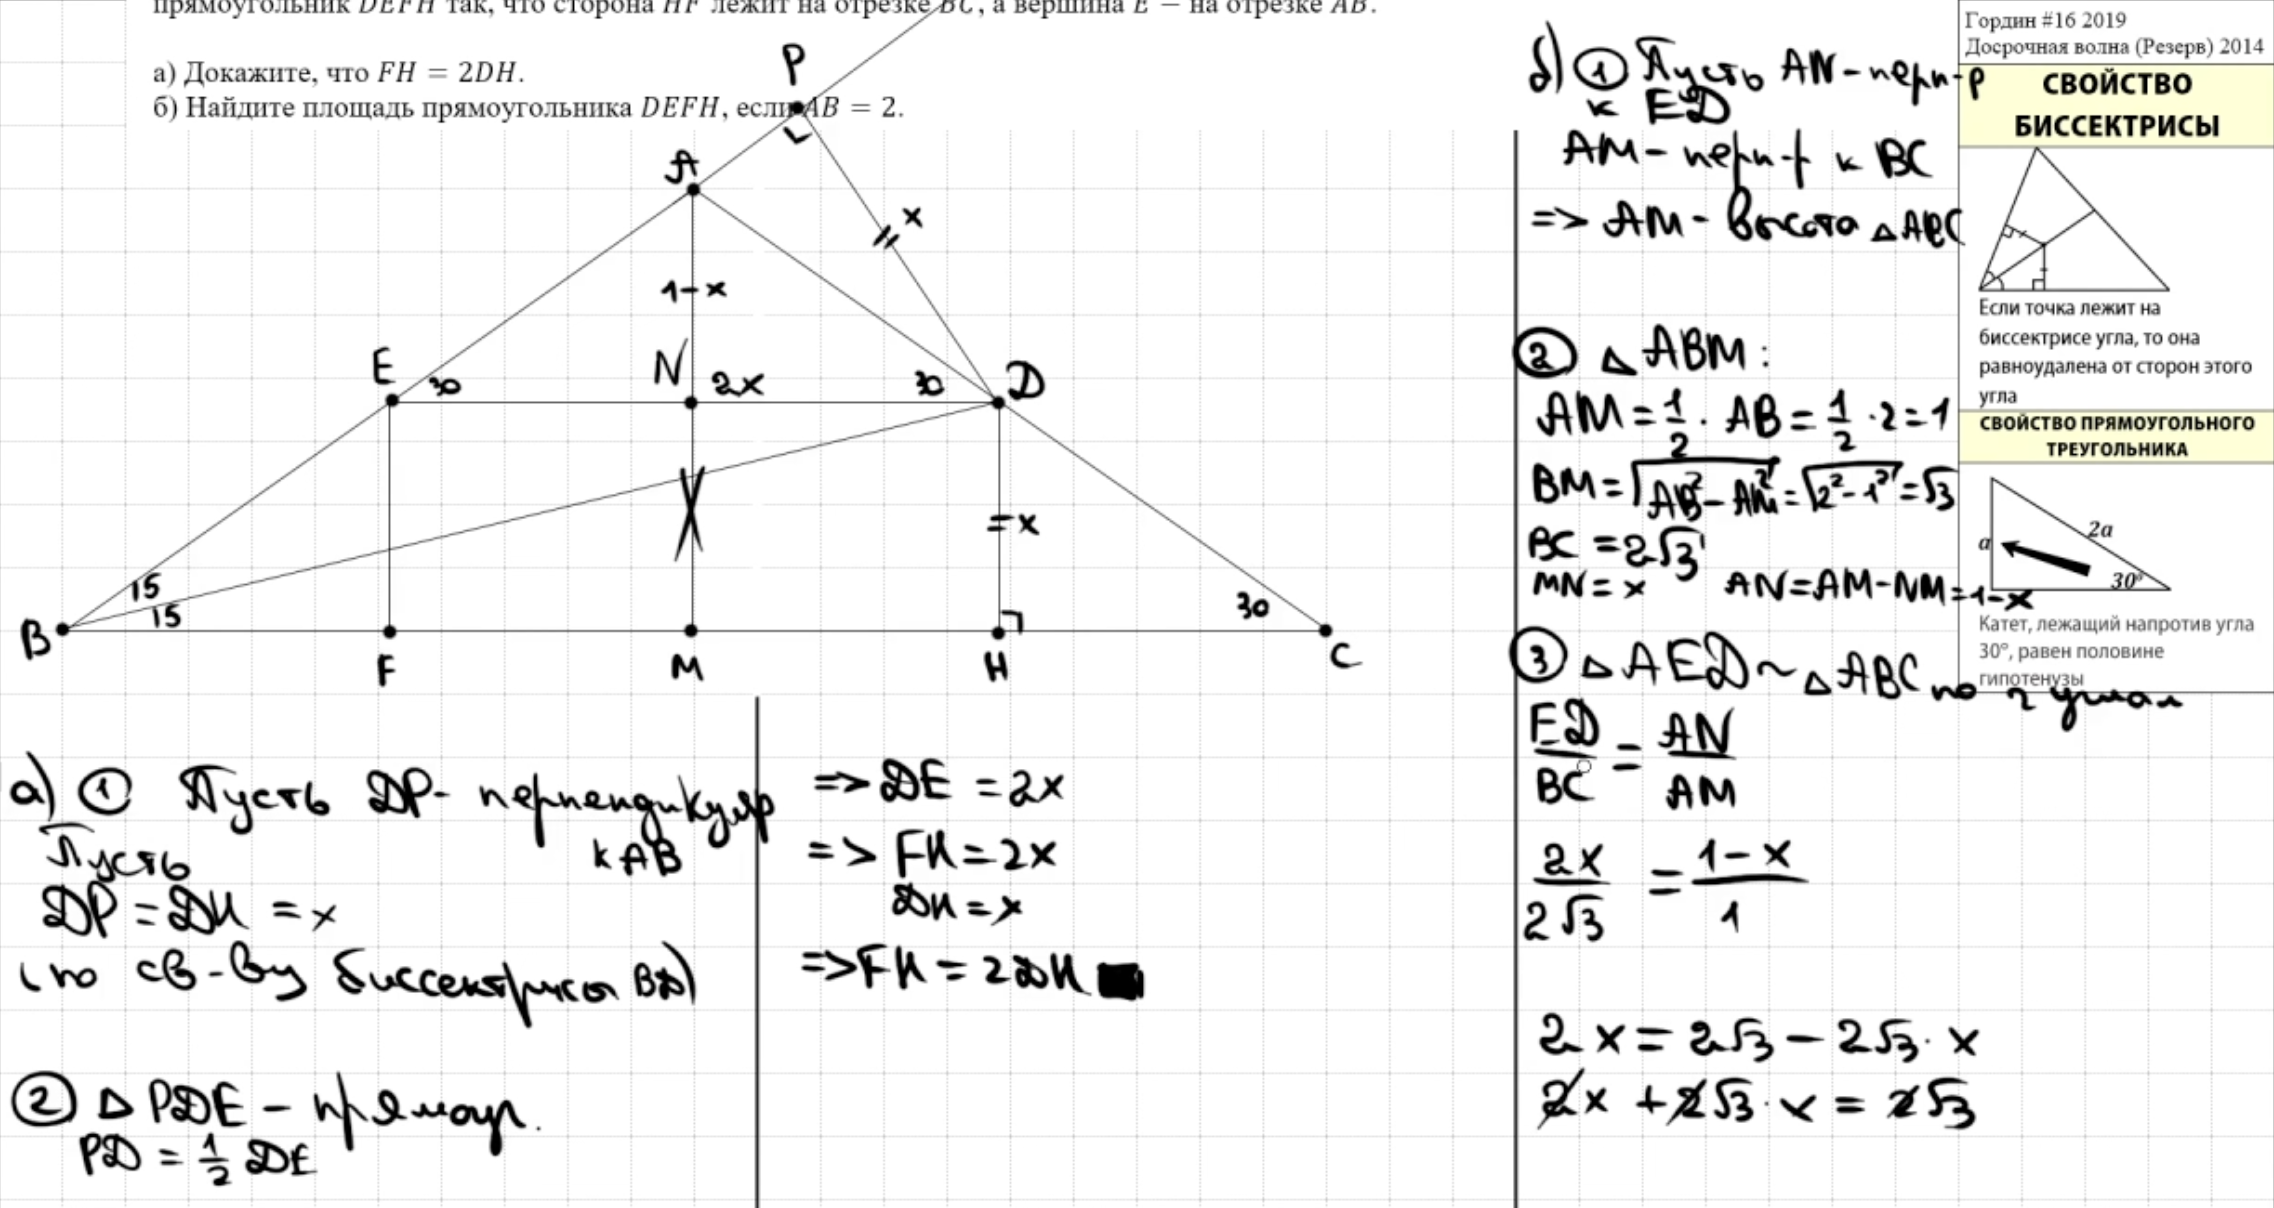 прямоугольник DEFH так, что сторона HF лежит на отрезке BC, а вершина E — на отрезке AB.
а) Докажите, что FH = 2DH.
б) Найдите площадь прямоугольника DEFH, если AB = 2.
P
A
x
1-x
E
30
N
2x
30
D
=x
15
15
30
B
F
M
H
C
а) ① Пусть DP- перпендикуляр
к AB
Пусть
DP = DH = x
(по св-ву биссектрисы BD)
② △ PDE - прямоуг.
PD = 1/2 DE
=> DE = 2x
=> FH = 2x
DH = x
=> FH = 2DH
б) ① Пусть AN - перп-р
к ED
AM - перп-р к BC
=> AM - высота △ABC
② △ ABM:
AM = 1/2 · AB = 1/2 · 2 = 1
BM = √AB² - AM² = √2² - 1² = √3
BC = 2√3
MN = x AN = AM - NM = 1-x
③ △ AED ~ △ ABC по 2 углам
ED/BC = AN/AM
2x/2√3 = 1-x/1
2x = 2√3 - 2√3 · x
2x + 2√3 · x = 2√3
Гордин #16 2019
Досрочная волна (Резерв) 2014
СВОЙСТВО
БИССЕКТРИСЫ
Если точка лежит на
биссектрисе угла, то она
равноудалена от сторон этого
угла
СВОЙСТВО ПРЯМОУГОЛЬНОГО
ТРЕУГОЛЬНИКА
2a
a
30°
Катет, лежащий напротив угла
30°, равен половине
гипотенузы